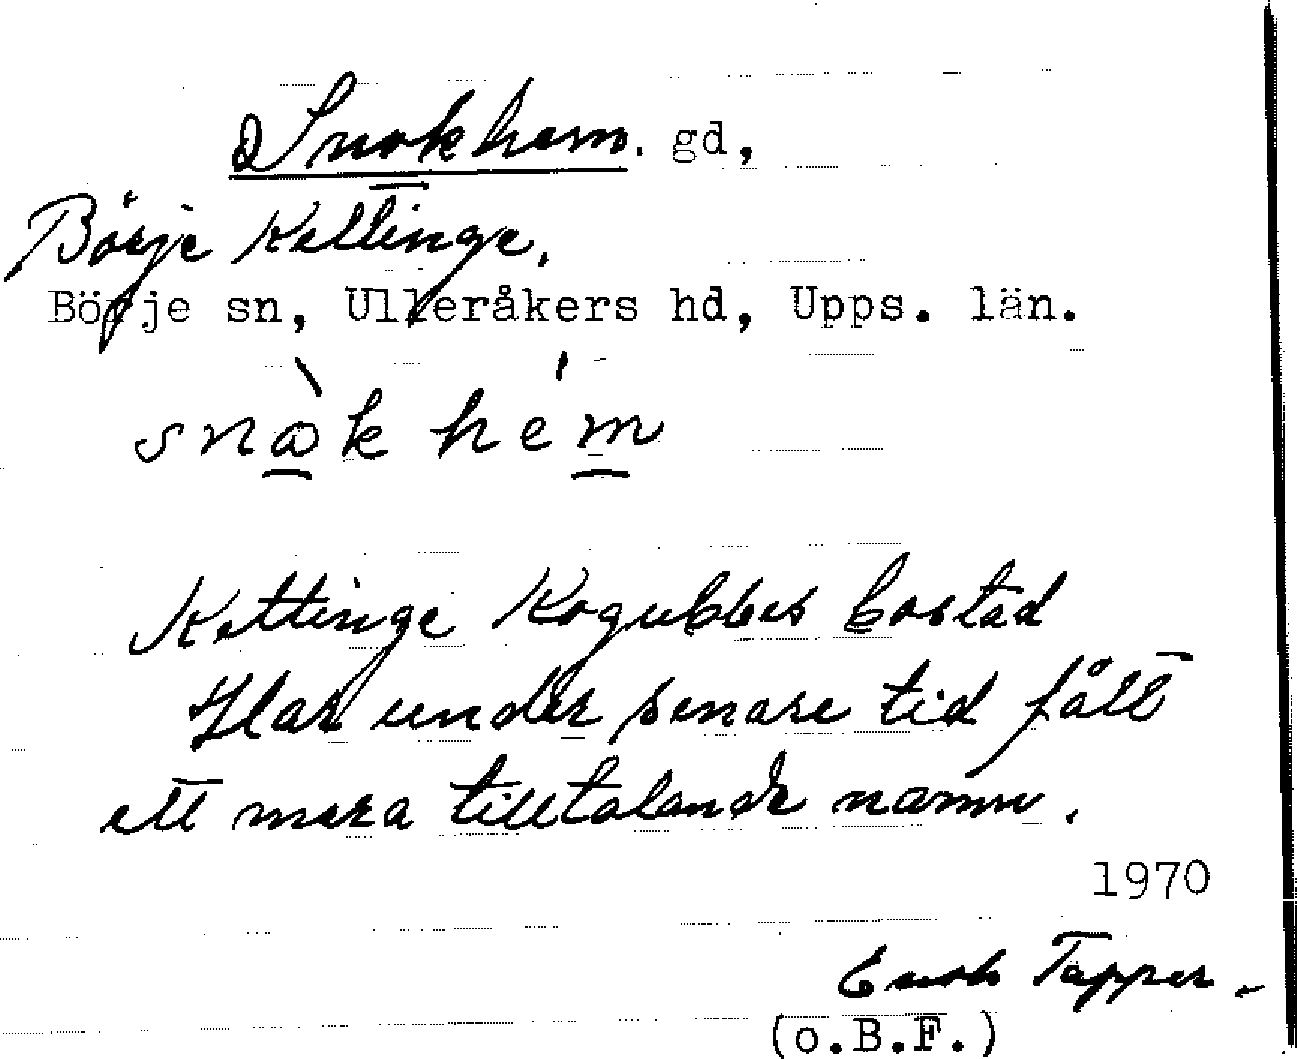 Snokhem. gd,
Börje Kettinge.
Börje sn, Ulleråkers hd, Upps. län.
snòk hém
Kettinge Kogubbes bostad
Har under senare tid fått
ett mera tilltalande namn.
1970
Tapper
(o.B.F.)